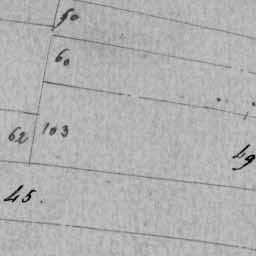 50
60
62
103
49
45.